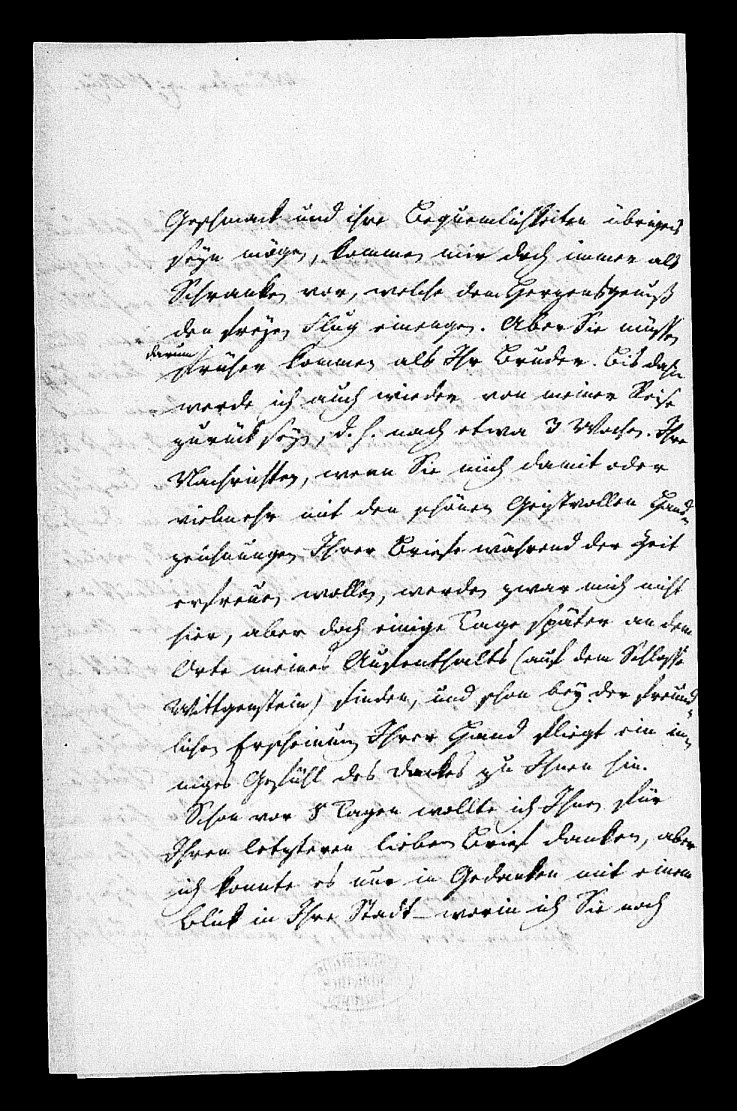 Geschmack und ihre Bequemlichkeiten übrigens
seyn mögen, kommen mir doch immer als
Schranken vor, welche dem Herzensgenuß
den freyen Flug einengen. Aber Sie müssen
darum
früher kommen als Ihr Bruder. Bis dahin
werde ich auch wieder von meiner Reise
zurück seyn, d. h. nach etwa 3 Wochen. Ihre
Nachrichten, wenn Sie mich damit oder
vielmehr mit den schönen Geistvollen Hand-
zeichnungen Ihrer Briefe während der Zeit
erfreuen wollen, werden zwar mich nicht
hier, aber doch einige Tage später an dem
Orte meines Aufenthalts (auf dem Schlosse
Wittgenstein) finden, und schon bey der freund-
lichen Erscheinung Ihrer Hand fliegt ein in-
niges Gefühl des Dankes zu Ihnen hin.
Schon vor 8 Tagen wollte ich Ihnen für
Ihren letzteren lieben Brief danken, aber
ich konnte es nur in Gedanken mit einem
Blick in Ihre Stadt – worin ich Sie noch